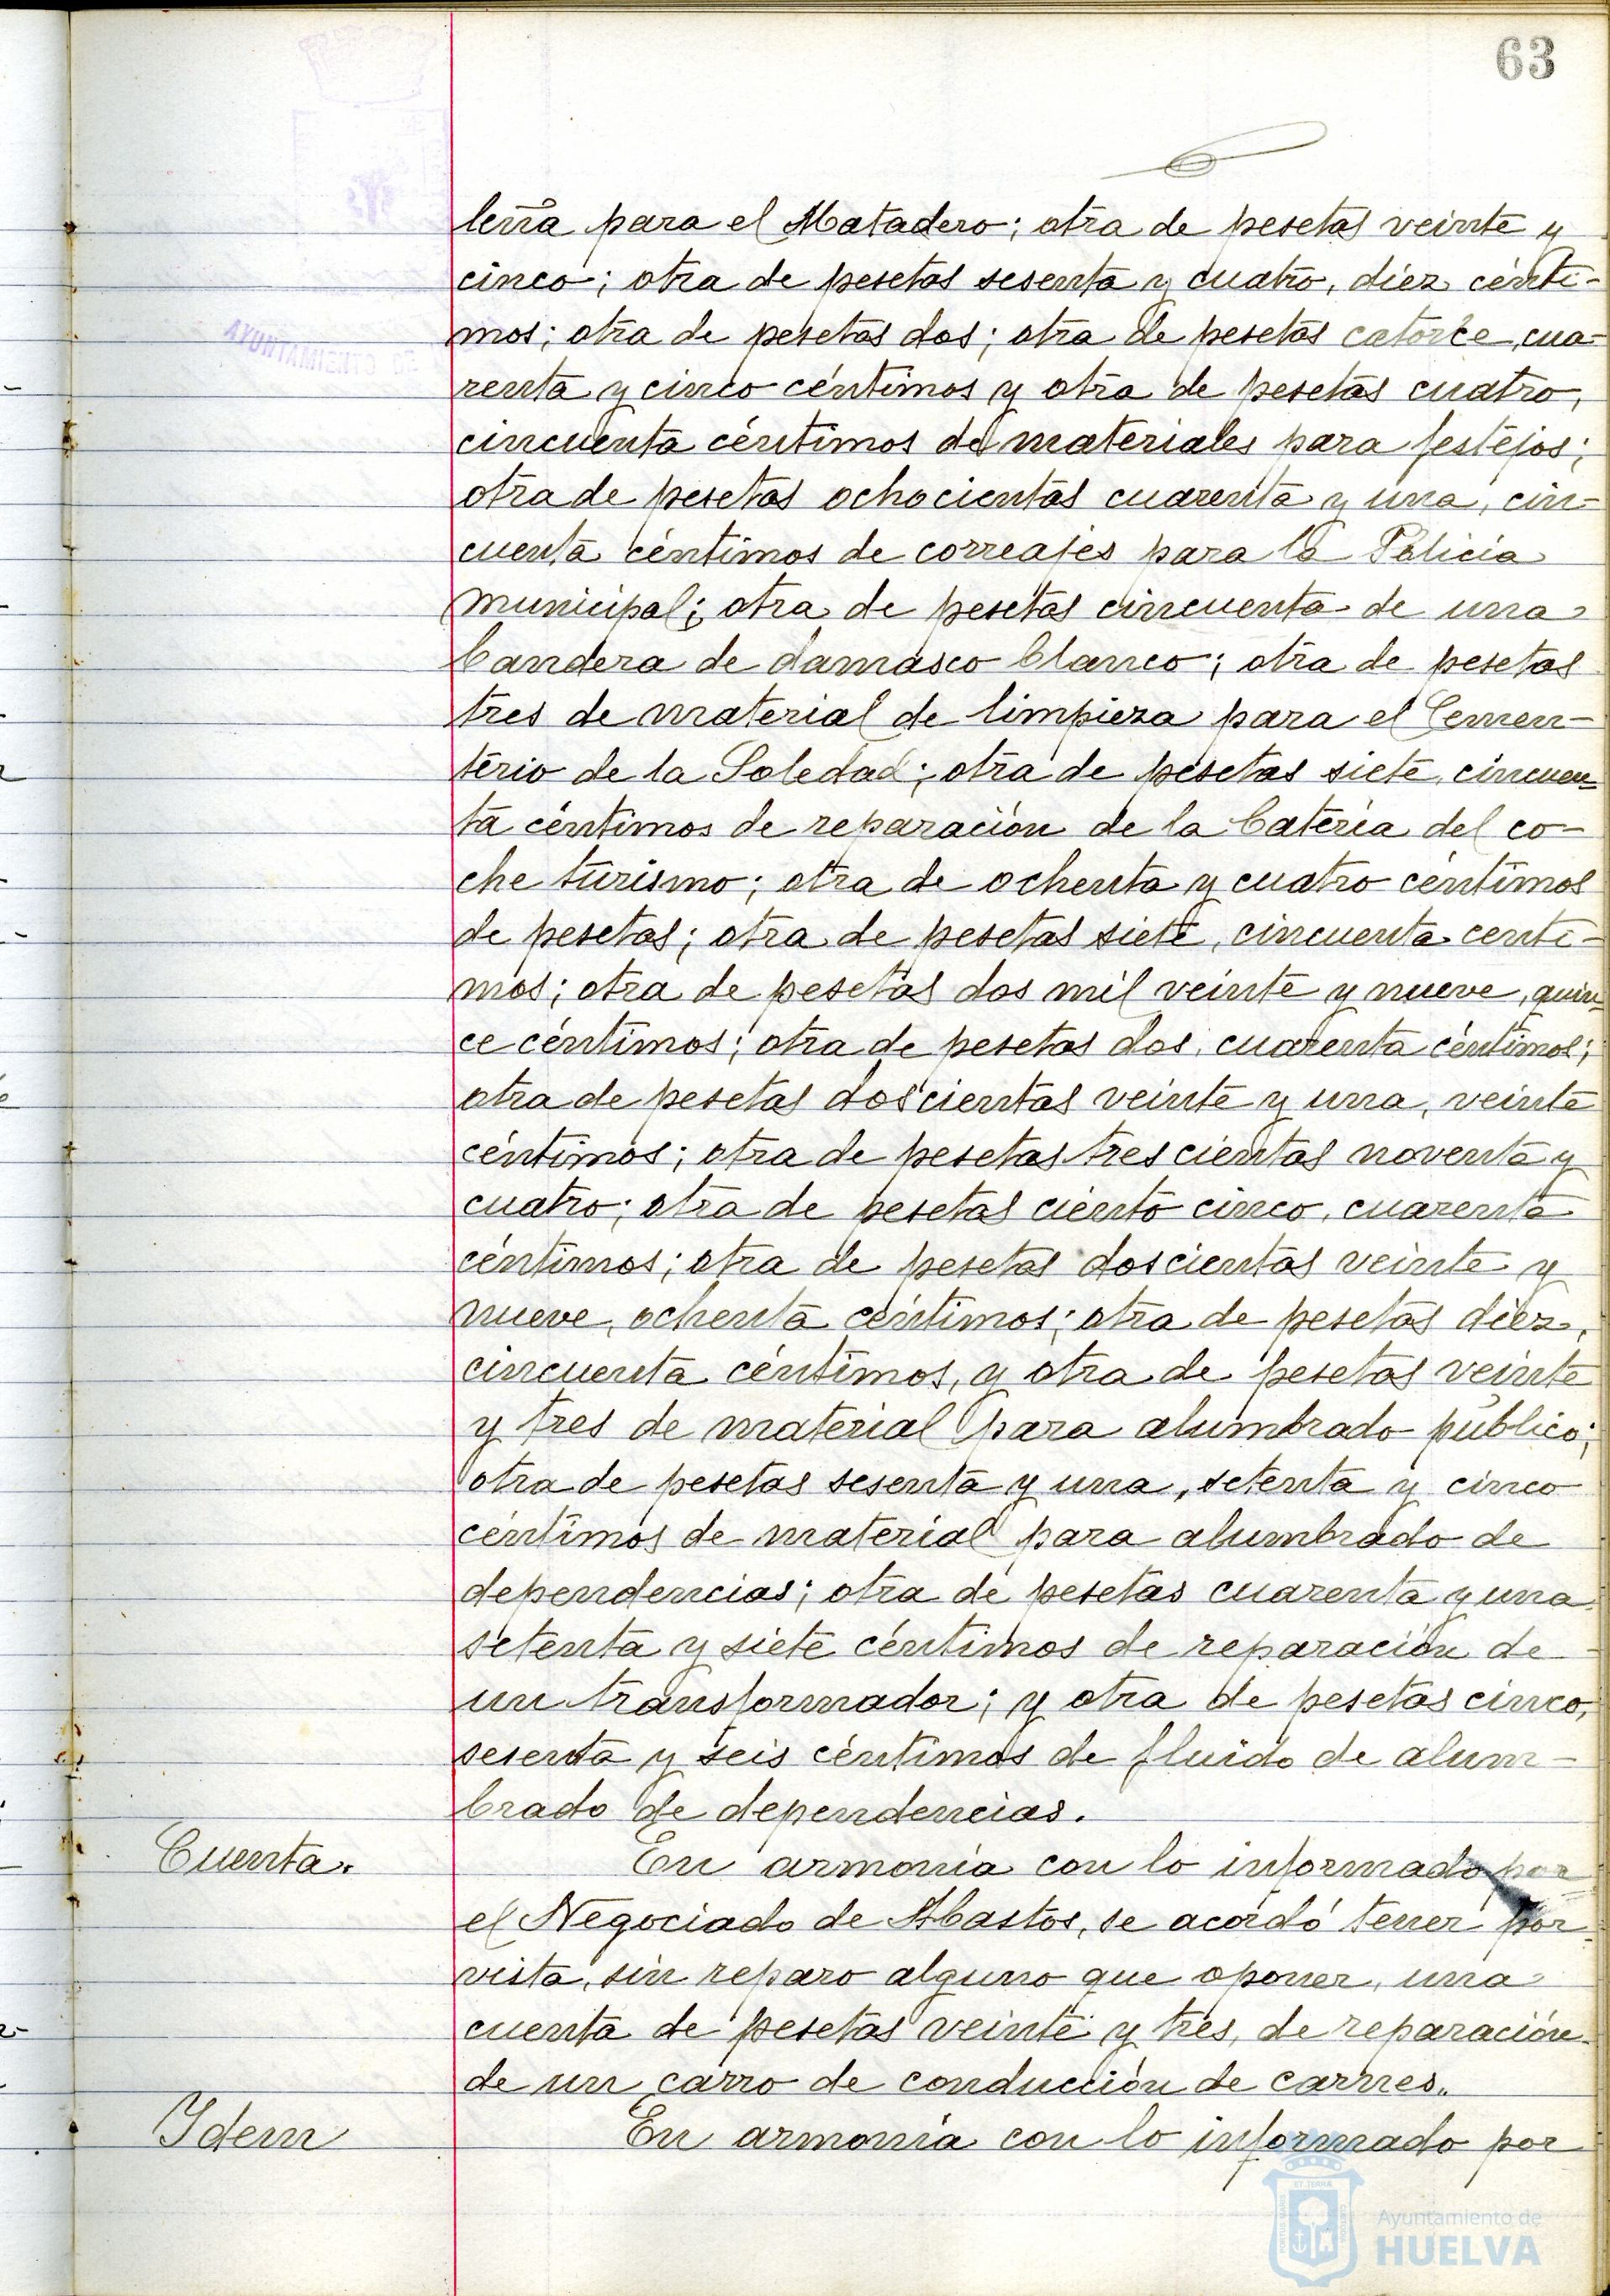 63
leña para el Matadero; otra de pesetas veinte y
cinco; otra de pesetas sesenta y cuatro, diez cénti-
mos; otra de pesetas dos; otra de pesetas catorce, cua-
renta y cinco céntimos y otra de pesetas cuatro,
cincuenta céntimos de materiales para festejos;
otra de pesetas ochocientas cuarenta y una, cin-
cuenta céntimos de correajes para la Policia
municipal; otra de pesetas cincuenta de una
bandera de damasco blanco; otra de pesetas
tres de material de limpieza para el Cemen-
terio de la Soledad; otra de pesetas siete, cincuen-
ta céntimos de reparación de la batería del co-
che turismo; otra de ochenta y cuatro céntimos
de pesetas; otra de pesetas siete, cincuenta centi-
mos; otra de pesetas dos mil veinte y nueve, quin-
ce céntimos; otra de pesetas dos, cuarenta céntimos;
otra de pesetas doscientas veinte y una, veinte
céntimos; otra de pesetas trescientas noventa y
cuatro; otra de pesetas ciento cinco, cuarenta
céntimos; otra de pesetas doscientas veinte y
nueve, ochenta céntimos; otra de pesetas diez,
cincuenta céntimos, y otra de pesetas veinte
y tres de material para alumbrado público;
otra de pesetas sesenta y una, setenta y cinco
céntimos de material para alumbrado de
dependencias; otra de pesetas cuarenta y una
setenta y siete céntimos de reparación de
un transformador; y otra de pesetas cinco,
sesenta y seis céntimos de fluido de alum-
brado de dependencias.
Cuenta. En armonía con lo informado por
el Negociado de Abastos, se acordó tener por
vista, sin reparo alguno que oponer, una
cuenta de pesetas veinte y tres, de reparación
de un carro de conducción de carnes.
Idem En armonía con lo informado por
AYUNTAMIENTO DE
Ayuntamiento de
HUELVA